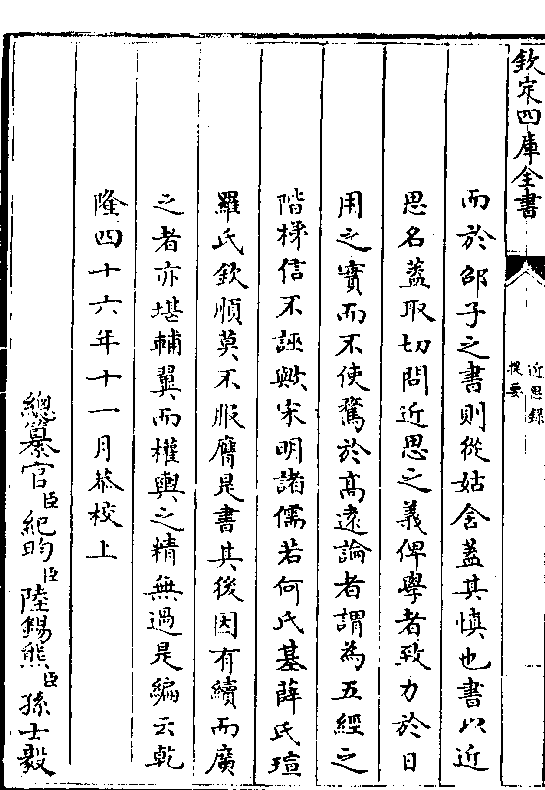 欽定四庫全書
近思録
提要
而於邵子之書則從姑舎蓋其慎也書以近
思名蓋取切問近思之義俾學者致力於日
用之實而不使騖於髙遠論者謂為五經之
階梯信不誣歟宋明諸儒若何氏基薛氏瑄
羅氏欽順莫不服膺是書其後因有續而廣
之者亦堪輔翼而權輿之精無過是編云乾
隆四十六年十一月恭校上
總纂官臣紀昀臣陸錫熊臣孫士毅